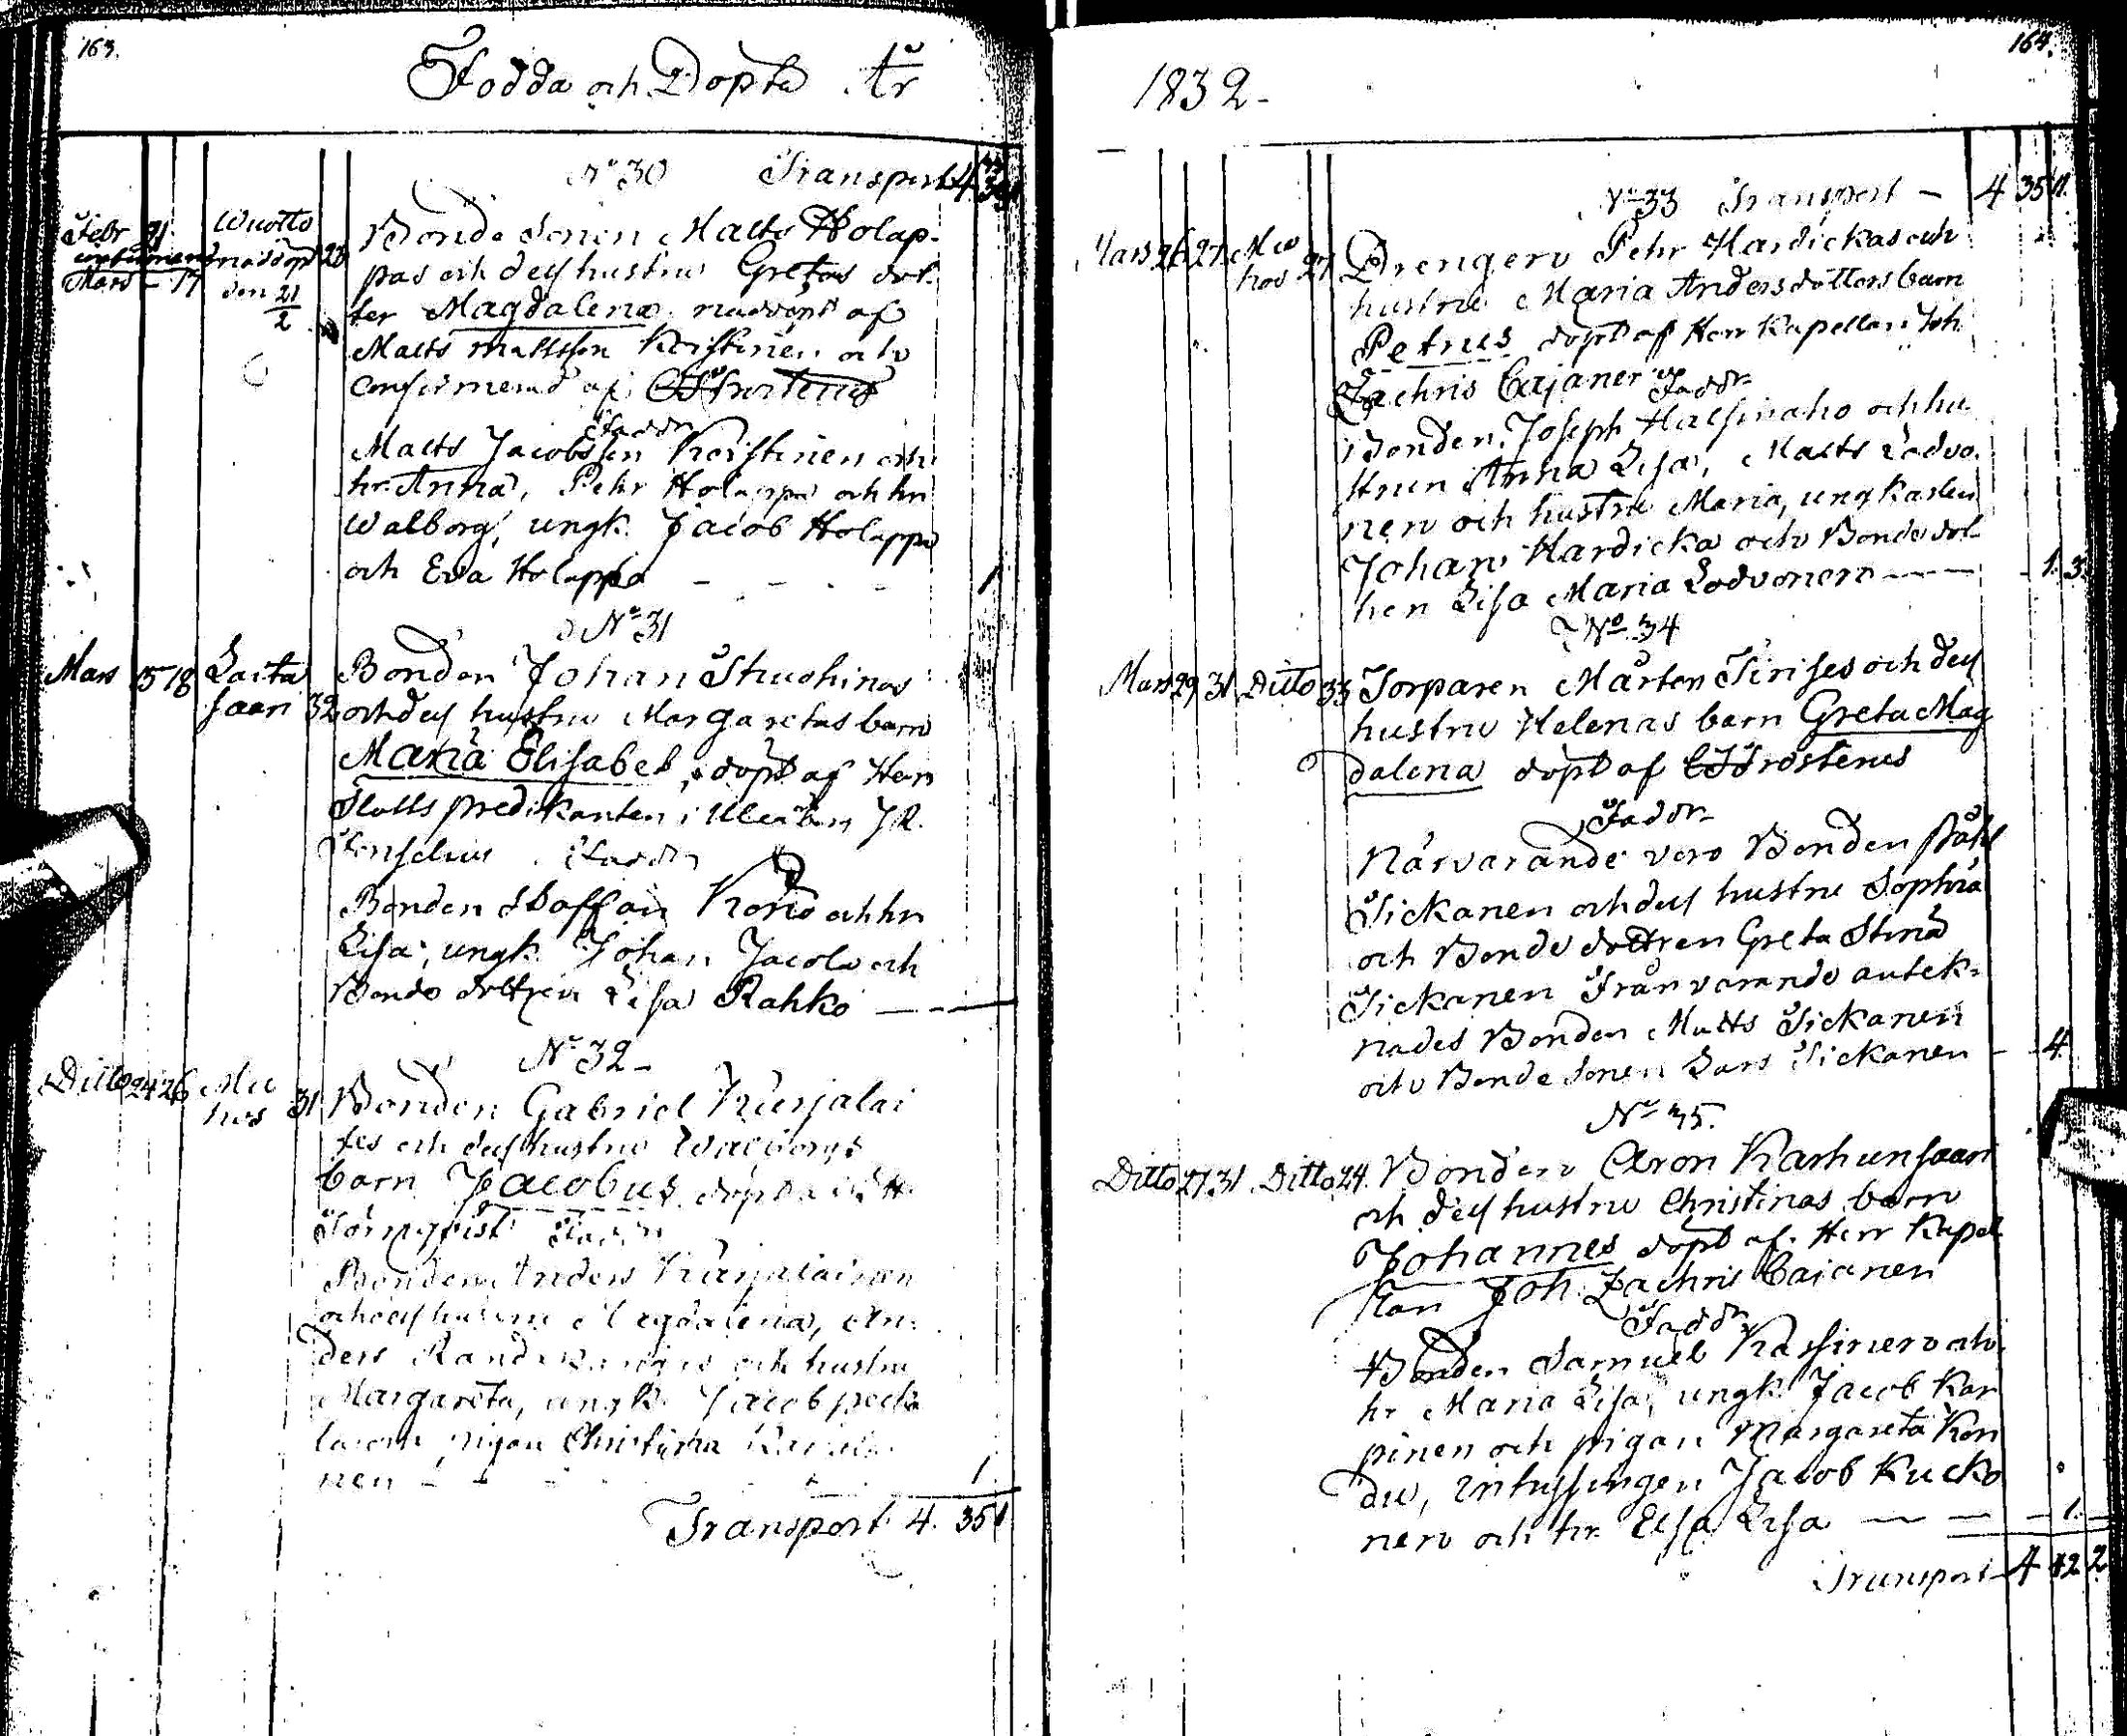 163.
Födda och Döpta År
N:o 30 Transport 4
Febr 21 Wuotto 23 Bonde Sonen Matts Holap-
nöddöpt pas och dess hustru Gretas dot-
Mars - 17 den 21/2 ter Magdalena nöddöpt af
Matts Mattsson Koistinen och
confirmerad af
Faddr
Matts Jacobsson Koistinen och
hr. Anna, Pehr Holappa och hr
Walborg, ungk. Jacob Holappa
och Eva Holappa - - - - 1
N:o 31
Mars 15 18 Laita Bonden Johan
saari 32 och dess hustru Margaretas barn
Maria Elisabet, döpt af Herr
Slottspredikanten i Uleåborg J R.
Faddr
Bonden Staffan och hr
Lisa, ungk. Johan Jacola och
Bonde dottren Lisa Rahko - - -
N:o 32 -
Ditto 24 26 Mu 31 Bonden Gabriel Karjalai
hos ses och dess hustru Walborgs
barn Jacobus döpt af
Törnqvist Faddr
Bonden Anders Karjalainen
och dess hustru Magdalena, An-
ders och hustru
Margareta, ungk. Jacob
pigan Christina
nen - - - 1
Transport 4. 35 1
164.
1832-
N:o 33 Transport - 4 35 1.
Mars 26 27 Mu 27 Drengen Pehr Hardickas och
hos hustru Maria Andersdotters barn
Petrus döpt af Herr Kapellan Joh
Zachris Cajaner
Faddr
Bonden Joseph Halsinaho och hu
strun Anna Lisa, Matts Lodvo
nen och hustru Maria, ungkarlen
Johan Hardicka och Bonde dot-
hen Lisa Maria Lodvonen - - - 1. 3.
N:o 34
Mars 29 31 Ditto 33 Torparen Mårten Tirises och dess
hustru Helenas barn Greta Mag
dalena döpt af
Faddr
Närvarande voro Bonden Påhl
Tickanen och dess hustru Sophia
och Bonde dottren Greta Stina
Tickanen Frånvarande antek-
nades Bonden Matts Tickanen
och Bonde Sonen Lars Tickanen - 4.
N:o 35.
Ditto 27 31. Ditto 24. Bonden Aron Karhunsaari
och dess hustru Christinas barn
Johannes döpt af Herr Kapel-
lan Joh. Zachris Cajanen
Faddr
Bonden Samuel Kassinen och
hr Maria Lisa, ungk Jacob Kar
pinen och pigan Margareta Kon
du, Inhysingen Jacob Kucko
nen och hr. Elsa Lisa - - - 1.
Transport 4 42 2